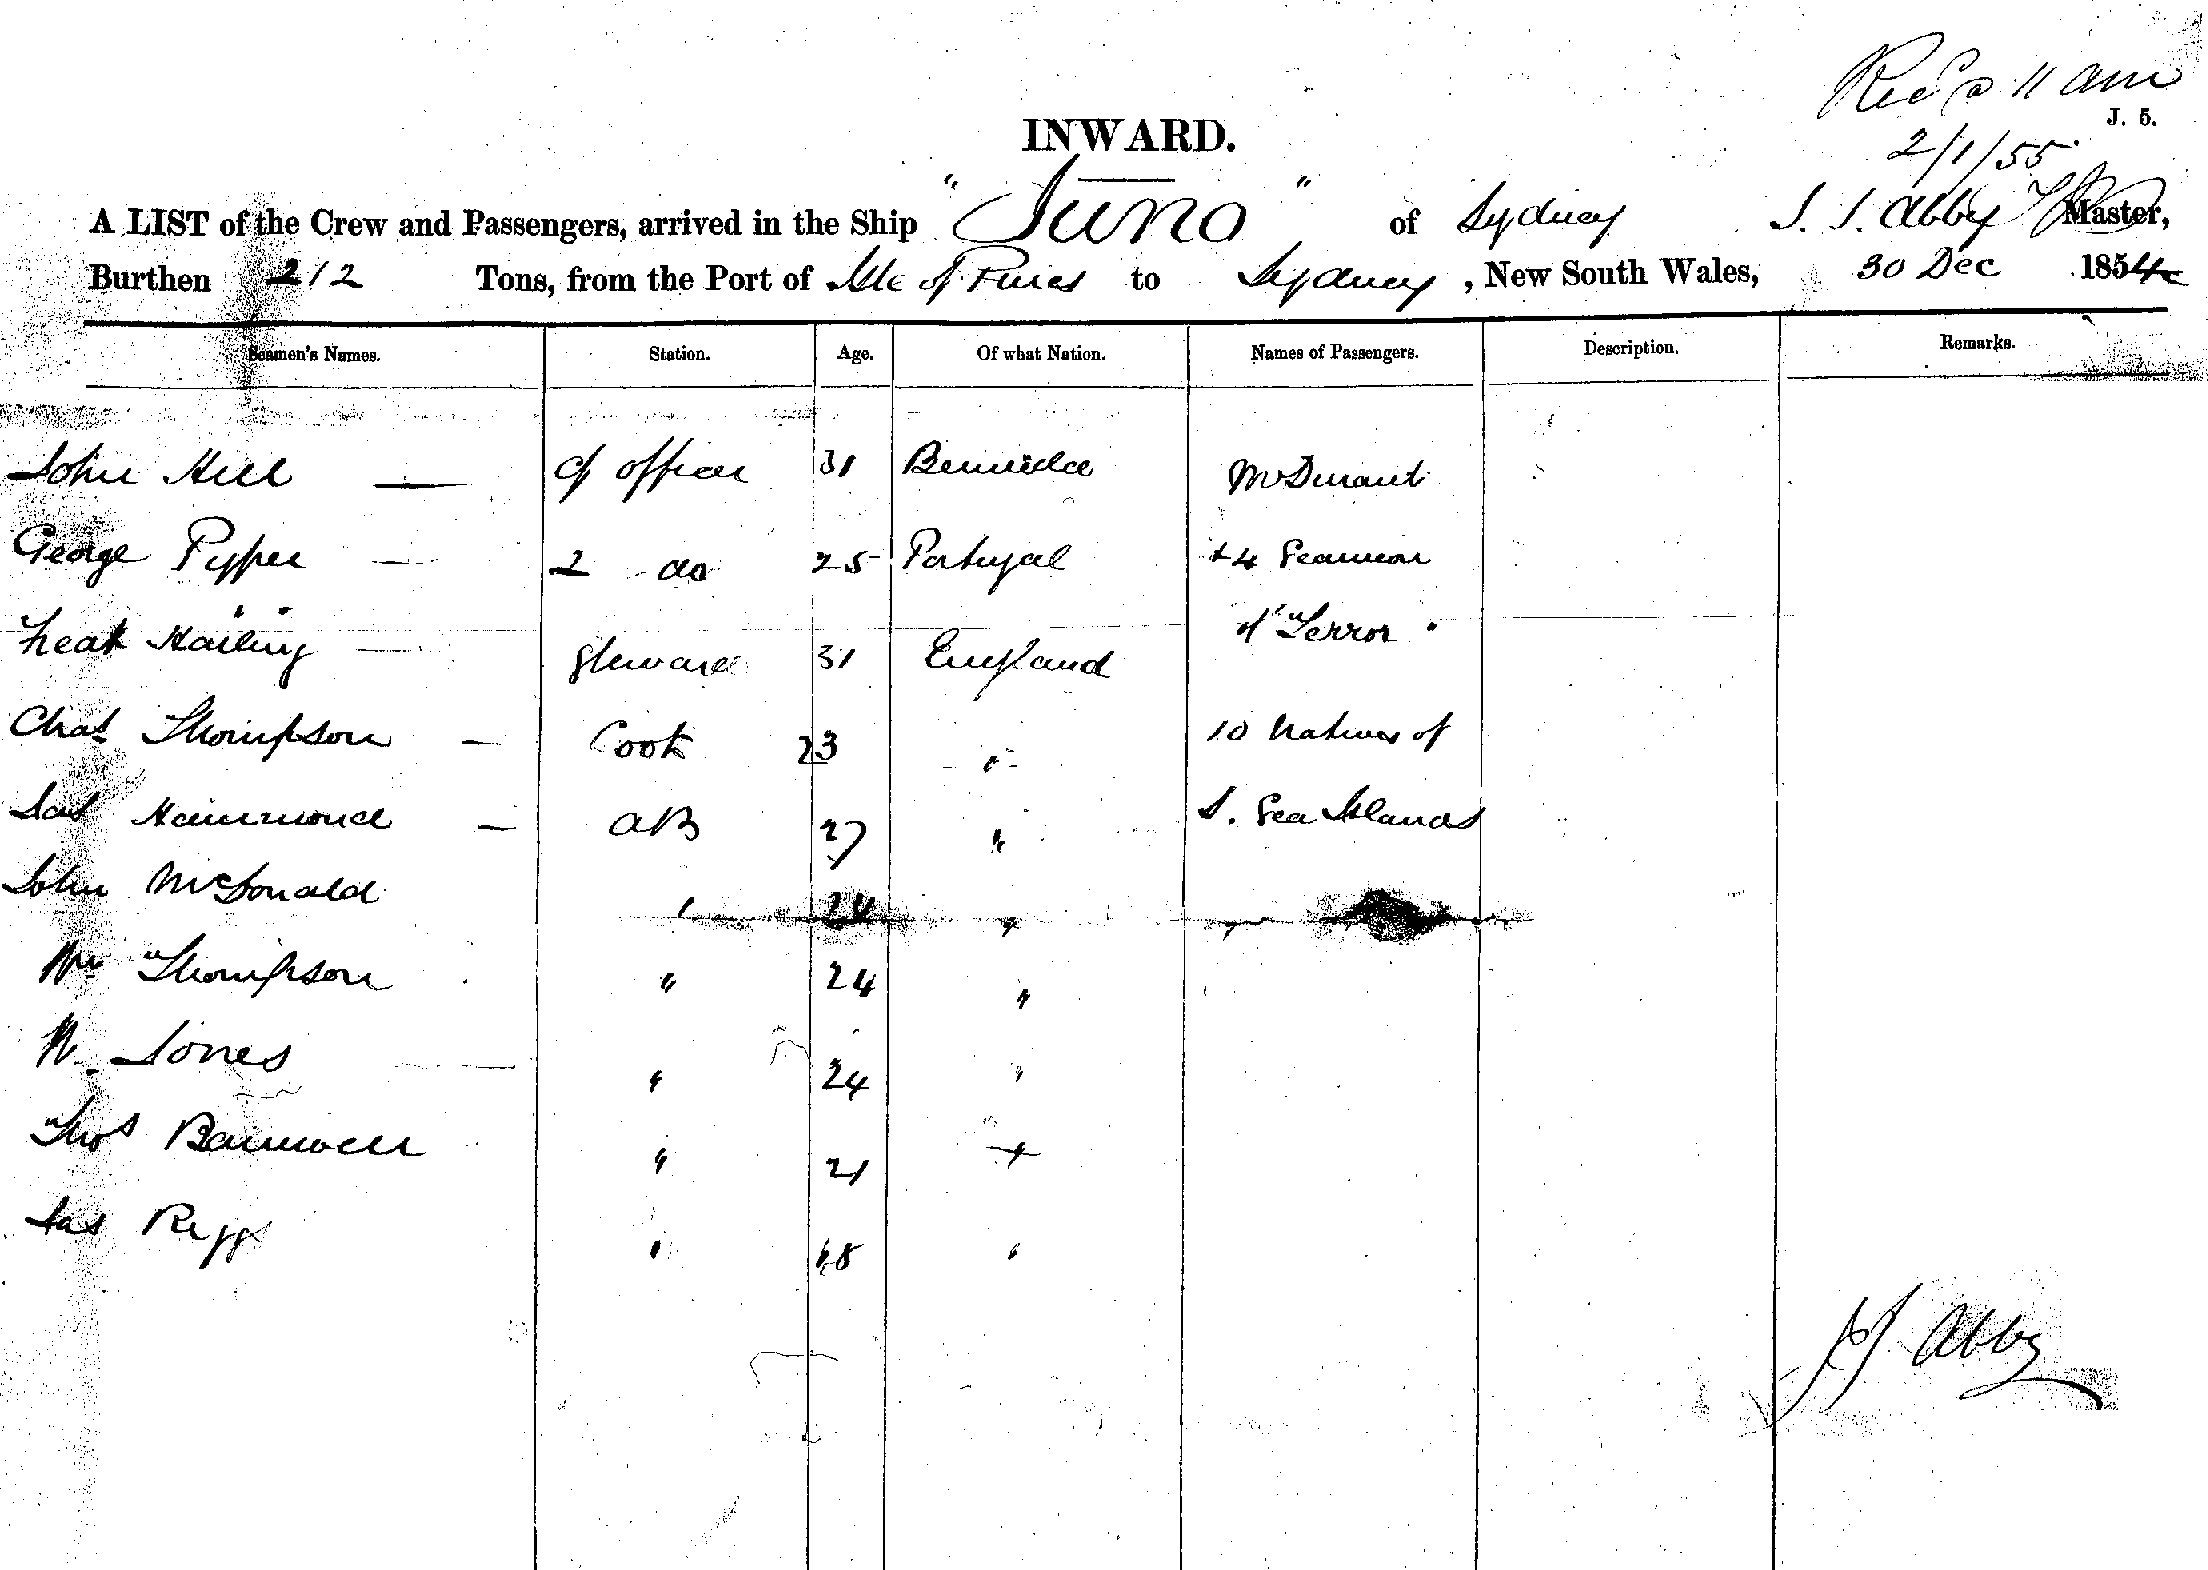 Recd 11 am
J. 5.
2/1/55
INWARD.
A LIST of the Crew and Passengers, arrived in the Ship "Juno" of Sydney J. J. Abby Master,
Burthen 212 Tons, from the Port of Isle of Pines to Sydney, New South Wales, 30 Dec 1854
Seamen's Names. Station. Age. Of what Nation. Names of Passengers. Description. Remarks.
John Hill — Cf officer 31 Bermuda Mr Durant
George Pypper — 2 do 25 Portugal + 4 Seamen
Hailing — Steward 31 England of "Terror"
Chas Thompson — Cook 23 " 10 Natives of
Jas Hammond — AB 27 " S. Sea Islands
John McDonald " 24 "
Wm Thompson " 24 "
W. Jones " 24 "
Thos " 21 "
Jas "  "
J J Abby